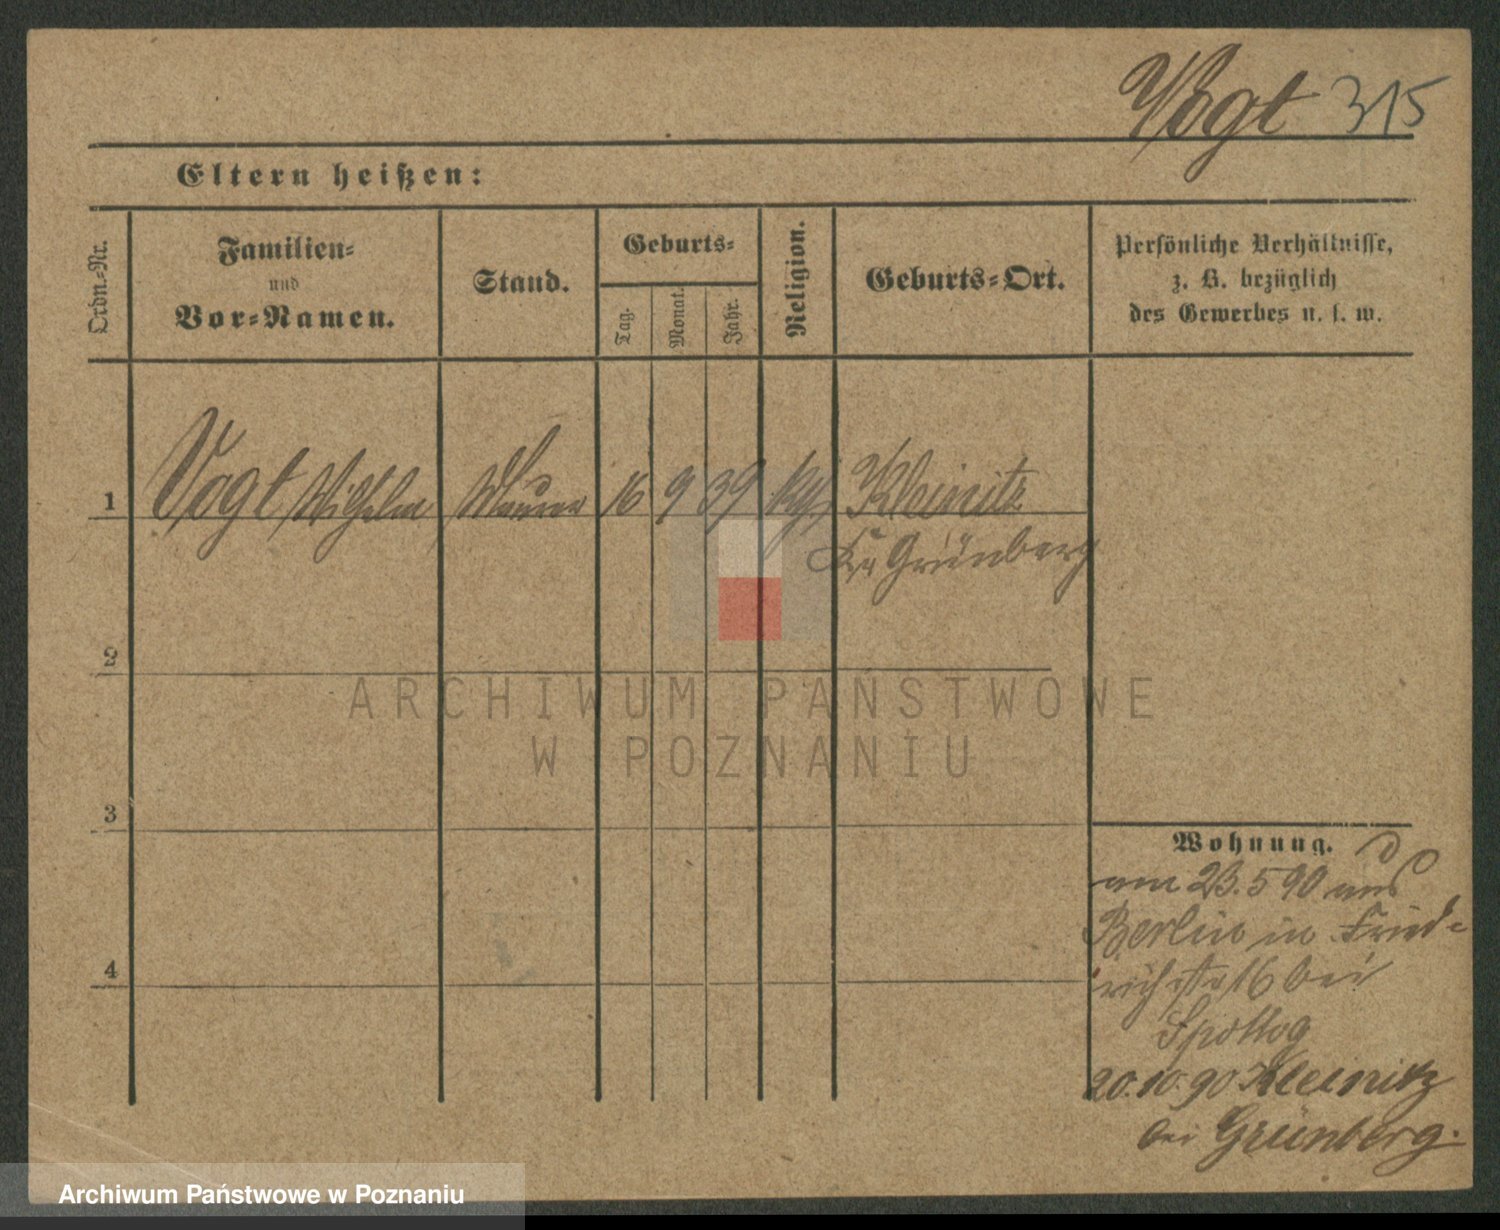 Vogt 315
Eltern heißen:
Ordn.=Nr.
Familien=
und
Vor=Namen.
Stand.
Geburts=
Tag.
Monat.
Jahr.
Religion.
Geburts=Ort.
Persönliche Verhältnisse,
z. B. bezüglich
des Gewerbes u. s. w.
1 Vogt Wilhelm Maurer 16 9 39 Kleinitz
Kr Grünberg
2
3
4
Wohnung.
am 23. 5 90 aus
Berlin in Fried=
richstr 16 bei
20. 10. 90 Kleinitz
bei Grünberg.
ARCHIWUM PAŃSTWOWE
W POZNANIU
Archiwum Państwowe w Poznaniu